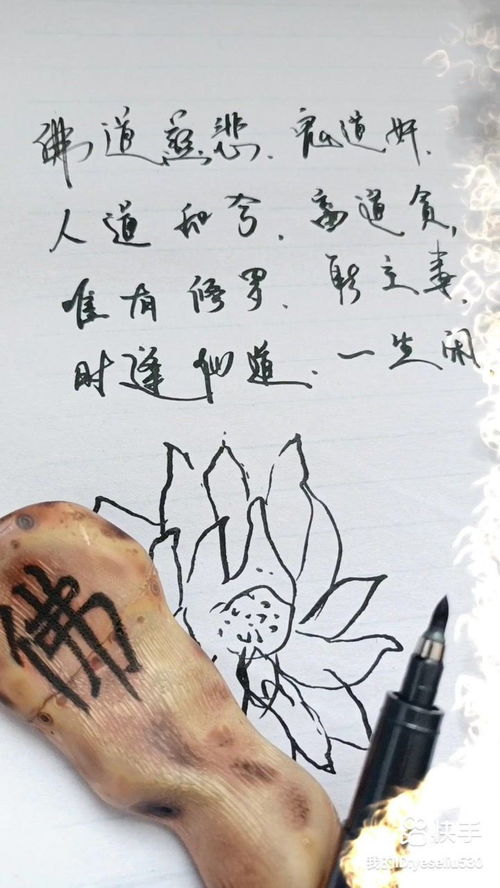 佛道慈悲.鬼道奸.
人道和兮.畜道贪,
唯有修罗.
时逢仙道.一生闲
佛
快手
我的ID:yeseliu530